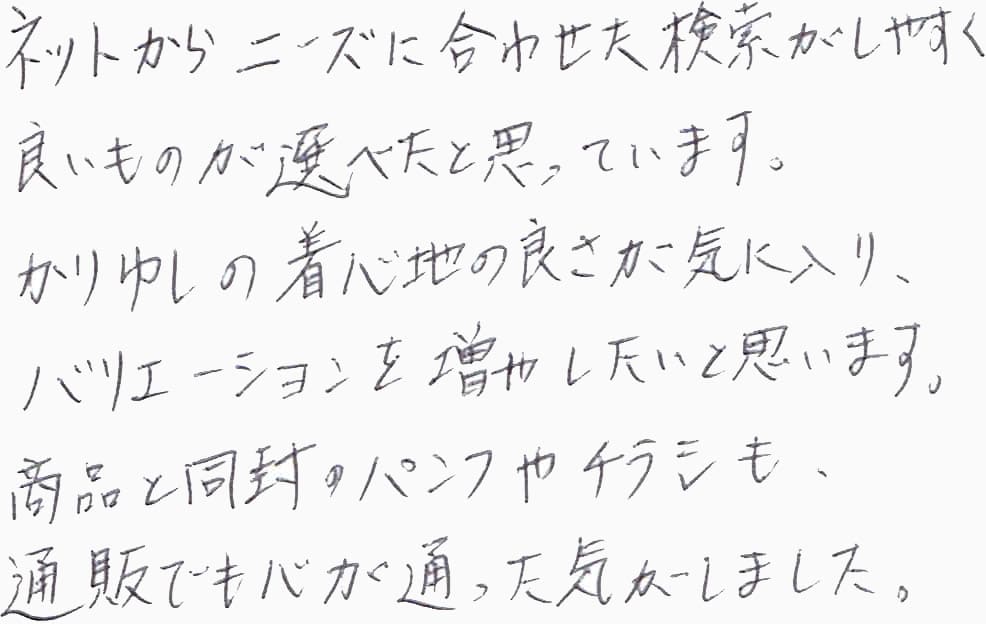 ネットからニーズに合わせた検索がしやすく
良いものが選べたと思っています。
かりゆしの着心地の良さが気に入り、
バリエーションを増やしたいと思います。
商品と同封のパンフやチラシも、
通販でも心が通った気がしました。